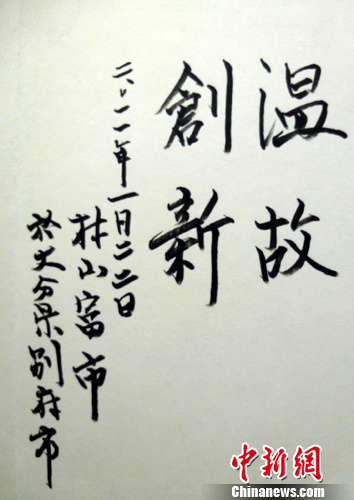 温故
創新
二〇一一年一月二二日
村山富市
於大分県別府市
中新網
Chinanews.com